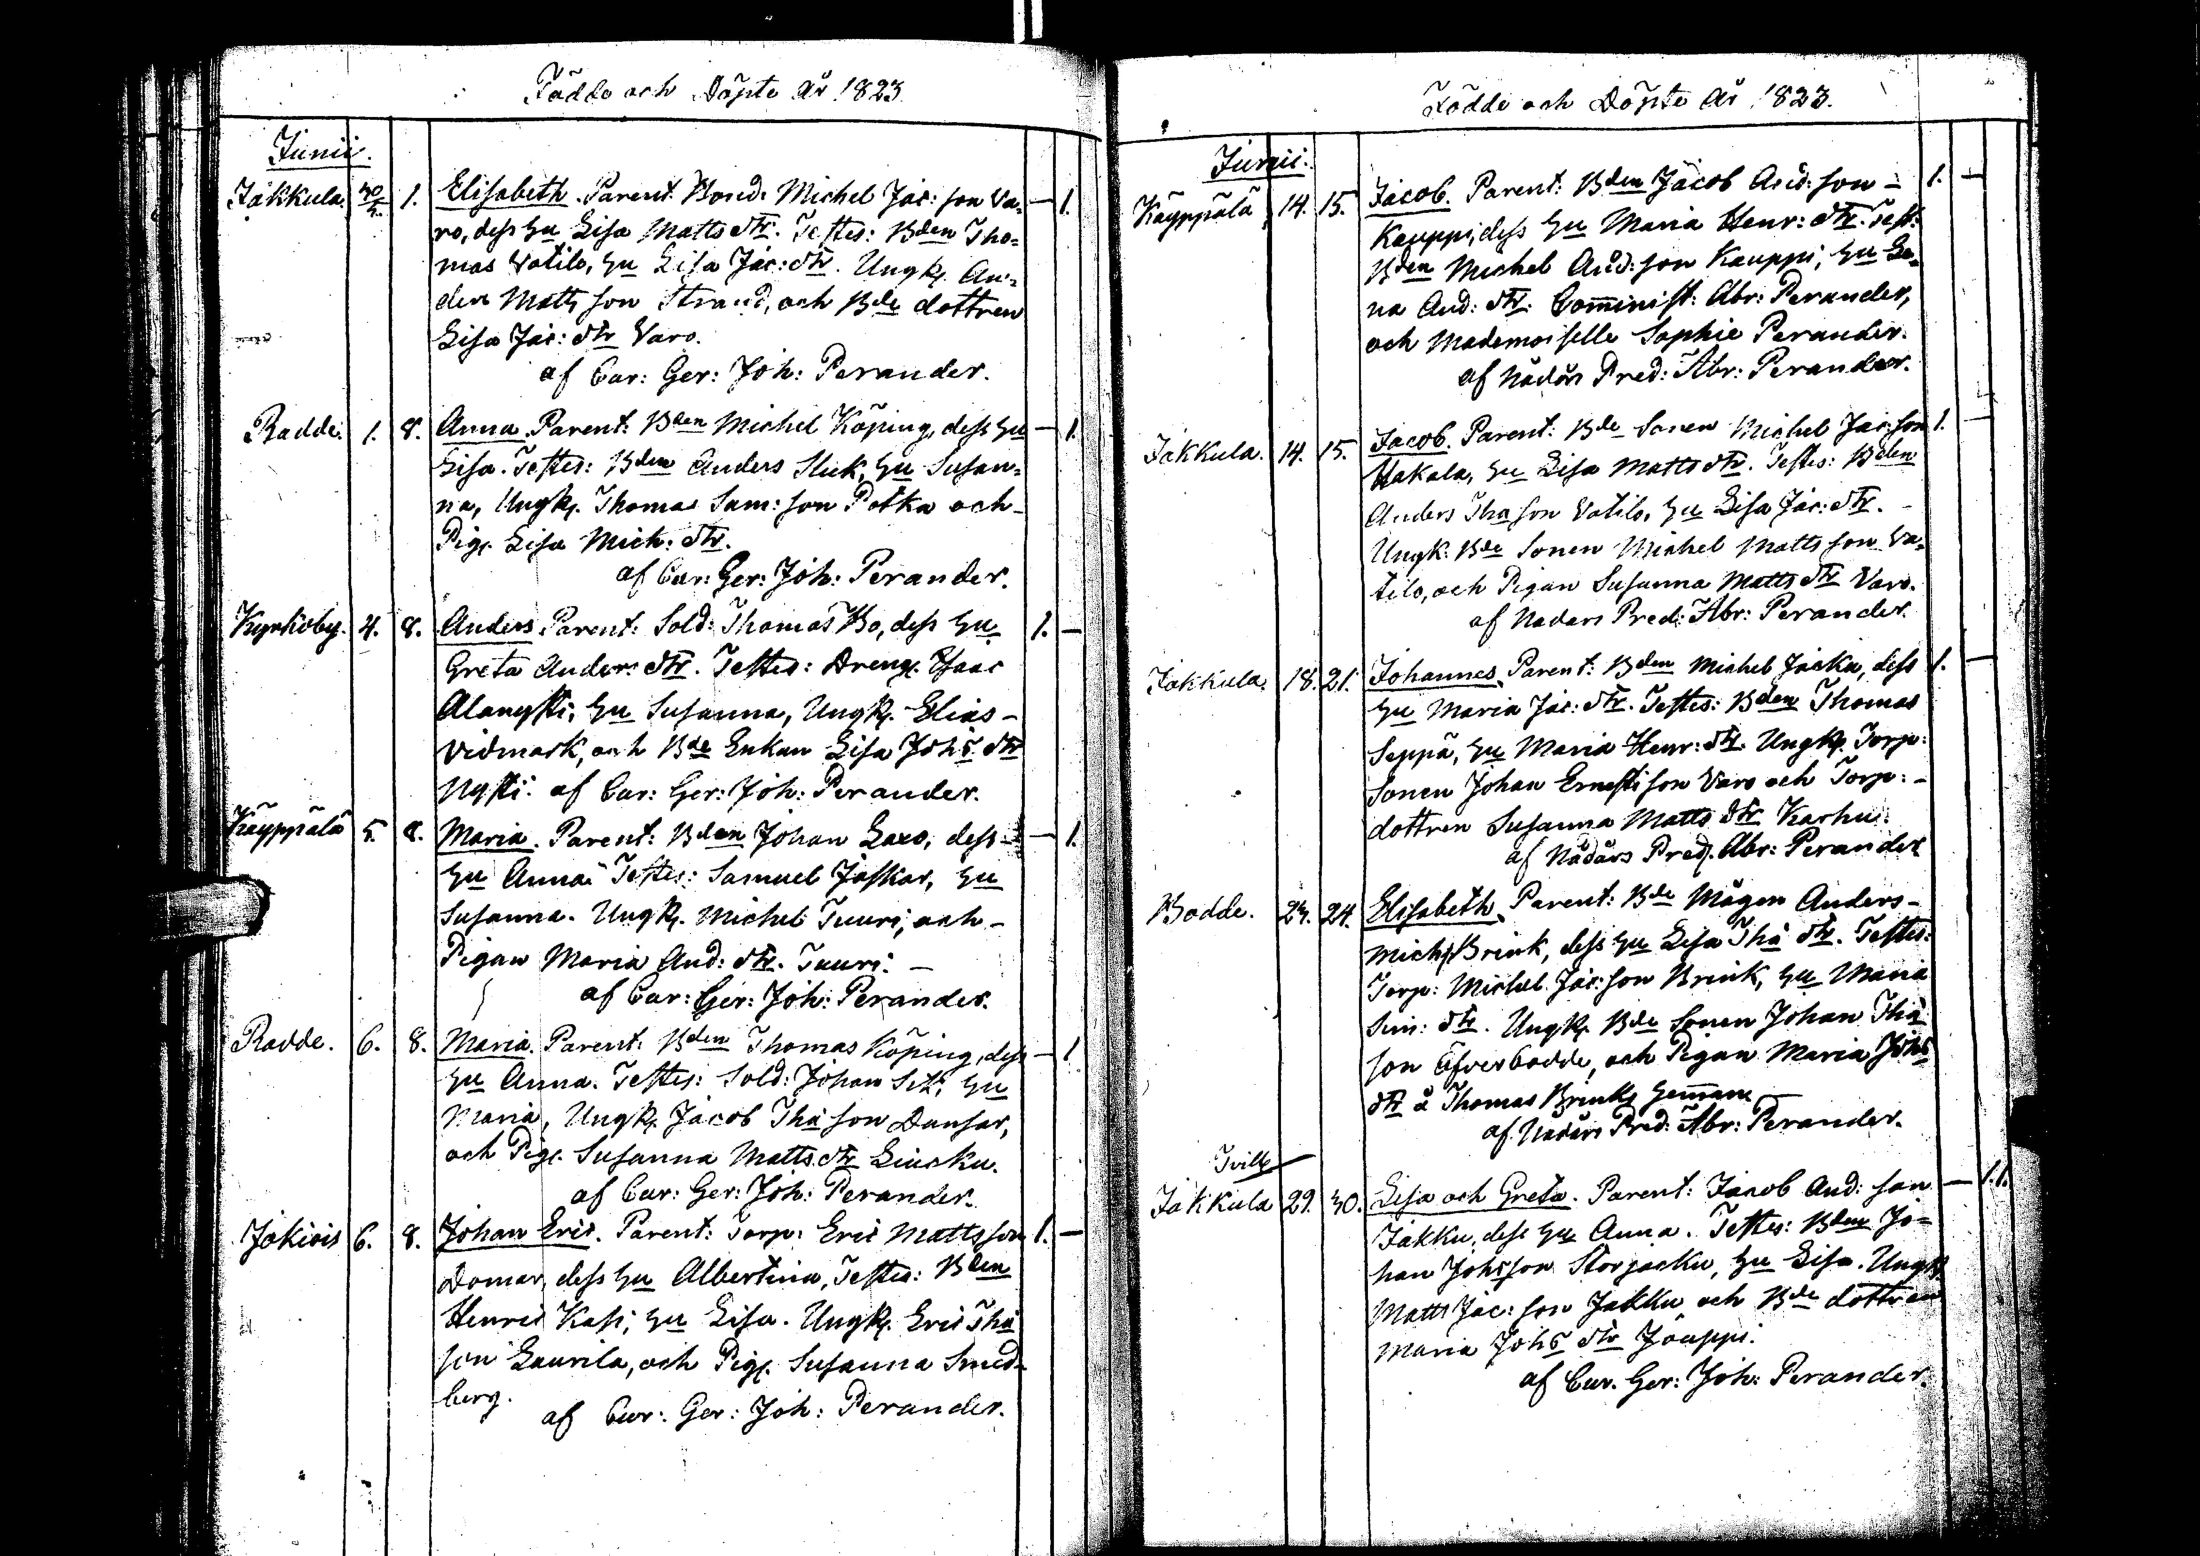 Födde och Döpte År 1823
Junii.
Jakkula. 30/5. 1. Elisabeth. Parent: Bond: Michel Jac: son Va= — 1.
ro, dess Hu Lisa Matts dtr. Testes: Bden Tho=
mas Vatilo, Hu Lisa Jac: dtr. Ungk. An=
ders Matts son Strand, och Bde dottren
Lisa Jac: dtr Varo.
af Cur: Ger: Joh: Perander.
Radde. 1. 8. Anna. Parent: Bden Michel Köping, dess Hu — 1.
Lisa. Testes: Bden Anders Stuk, Hu Susan=
na, Ungk. Thomas Sam: son Potka och –
Pig. Lisa Mich: dtr.
af Cur: Ger: Joh: Perander.
Kyrkoby. 4. 8. Anders. Parent: Sold: Thomas Bo, dess Hu 1. —
Greta Anders dtr. Testes: Dreng. Isaac
Alanysti, Hu Susanna, Ungk. Elias –
Vidmark, och Bde Enkan Lisa Johs dtr
Nysti. af Cur: Ger: Joh: Perander.
Käyppälä 5. 8. Maria. Parent: Bden Johan Laxo, dess — 1.
Hu Anna. Testes: Samuel Jåskar, Hu
Susanna. Ungk. Michel Tuuri, och –
Pigan Maria And: dtr. Tuuri. –
af Cur: Ger: Joh: Perander.
Radde. 6. 8. Maria. Parent: Bden Thomas Köping, dess — 1
Hu Anna. Testes: Sold: Johan Sik, Hu
Maria, Ungk. Jacob Tha son Dansar,
och Pig. Susanna Matts dtr Liucku.
af Cur: Ger: Joh: Perander.
Jokiois 6. 8. Johan Eric. Parent: Torp: Eric Matts son 1. —
Domar, dess Hu Albertina, Testes: Bden
Henric Kass, Hu Lisa. Ungk. Eric Tha
son Laurila, och Pig. Susanna Smed=
berg.
af Cur: Ger: Joh: Perander.
Födde och Döpte År 1823.
Junii.
Käyppälä 14. 15. Jacob. Parent: Bden Jacob And: son – 1. —
Kauppi, dess Hu Maria Henr: dtr. Test:
Bden Michel And: son Kauppi, Hu Le=
na And: dtr. Comminist: Abr: Perander,
och Mademoiselle Sophie Perander.
af Nådårs Pred: Abr: Perander.
Jakkula. 14. 15. Jacob. Parent: Bde Sonen Michel Jac: son 1. —
Hakala, Hu Lisa Matts dtr. Testes: Bden
Anders Tha son Vatilo, Hu Lisa Jac: dtr. –
Ungk: Bde Sonen Michel Matts son Va=
tilo, och Pigan Susanna Matts dtr Varo.
af Nådårs Pred: Abr: Perander.
Jakkula. 18. 21. Johannes. Parent: Bden Michel Jacku, dess 1. —
Hu Maria Jac: dtr. Testes: Bden Thomas
Seppä, Hu Maria Henr: dtr. Ungk. Torp:
Sonen Johan Ernsti son Varo och Torp: –
dottren Susanna Matts dtr Karhu.
af Nådårs Pred. Abr: Perander
Bodde. 24. 24. Elisabeth. Parent: Bde Mågen Anders –
Mich: Brink, dess Hu Lisa Tha dtr. Testes:
Torp: Michel Jac: son Brink, Hu Maria
Sim: dtr. Ungk. Bde Sonen Johan Tha
son Öfverbodde, och Pigan Maria Johs
dtr å Thomas Brinks Hemman
af Nådårs Pred: Abr: Perander.
Tvill.
Jakkula 29. 30. Lisa och Greta. Parent: Jacob And: son — 1.1.
Jakku, dess Hu Anna. Testes: Bden Jo=
han Johs son Storjacku, Hu Lisa. Ungk.
Matts Jac: son Jakku och Bde dottren
Maria Johs dtr Jouppi.
af Cur. Ger: Joh: Perander.